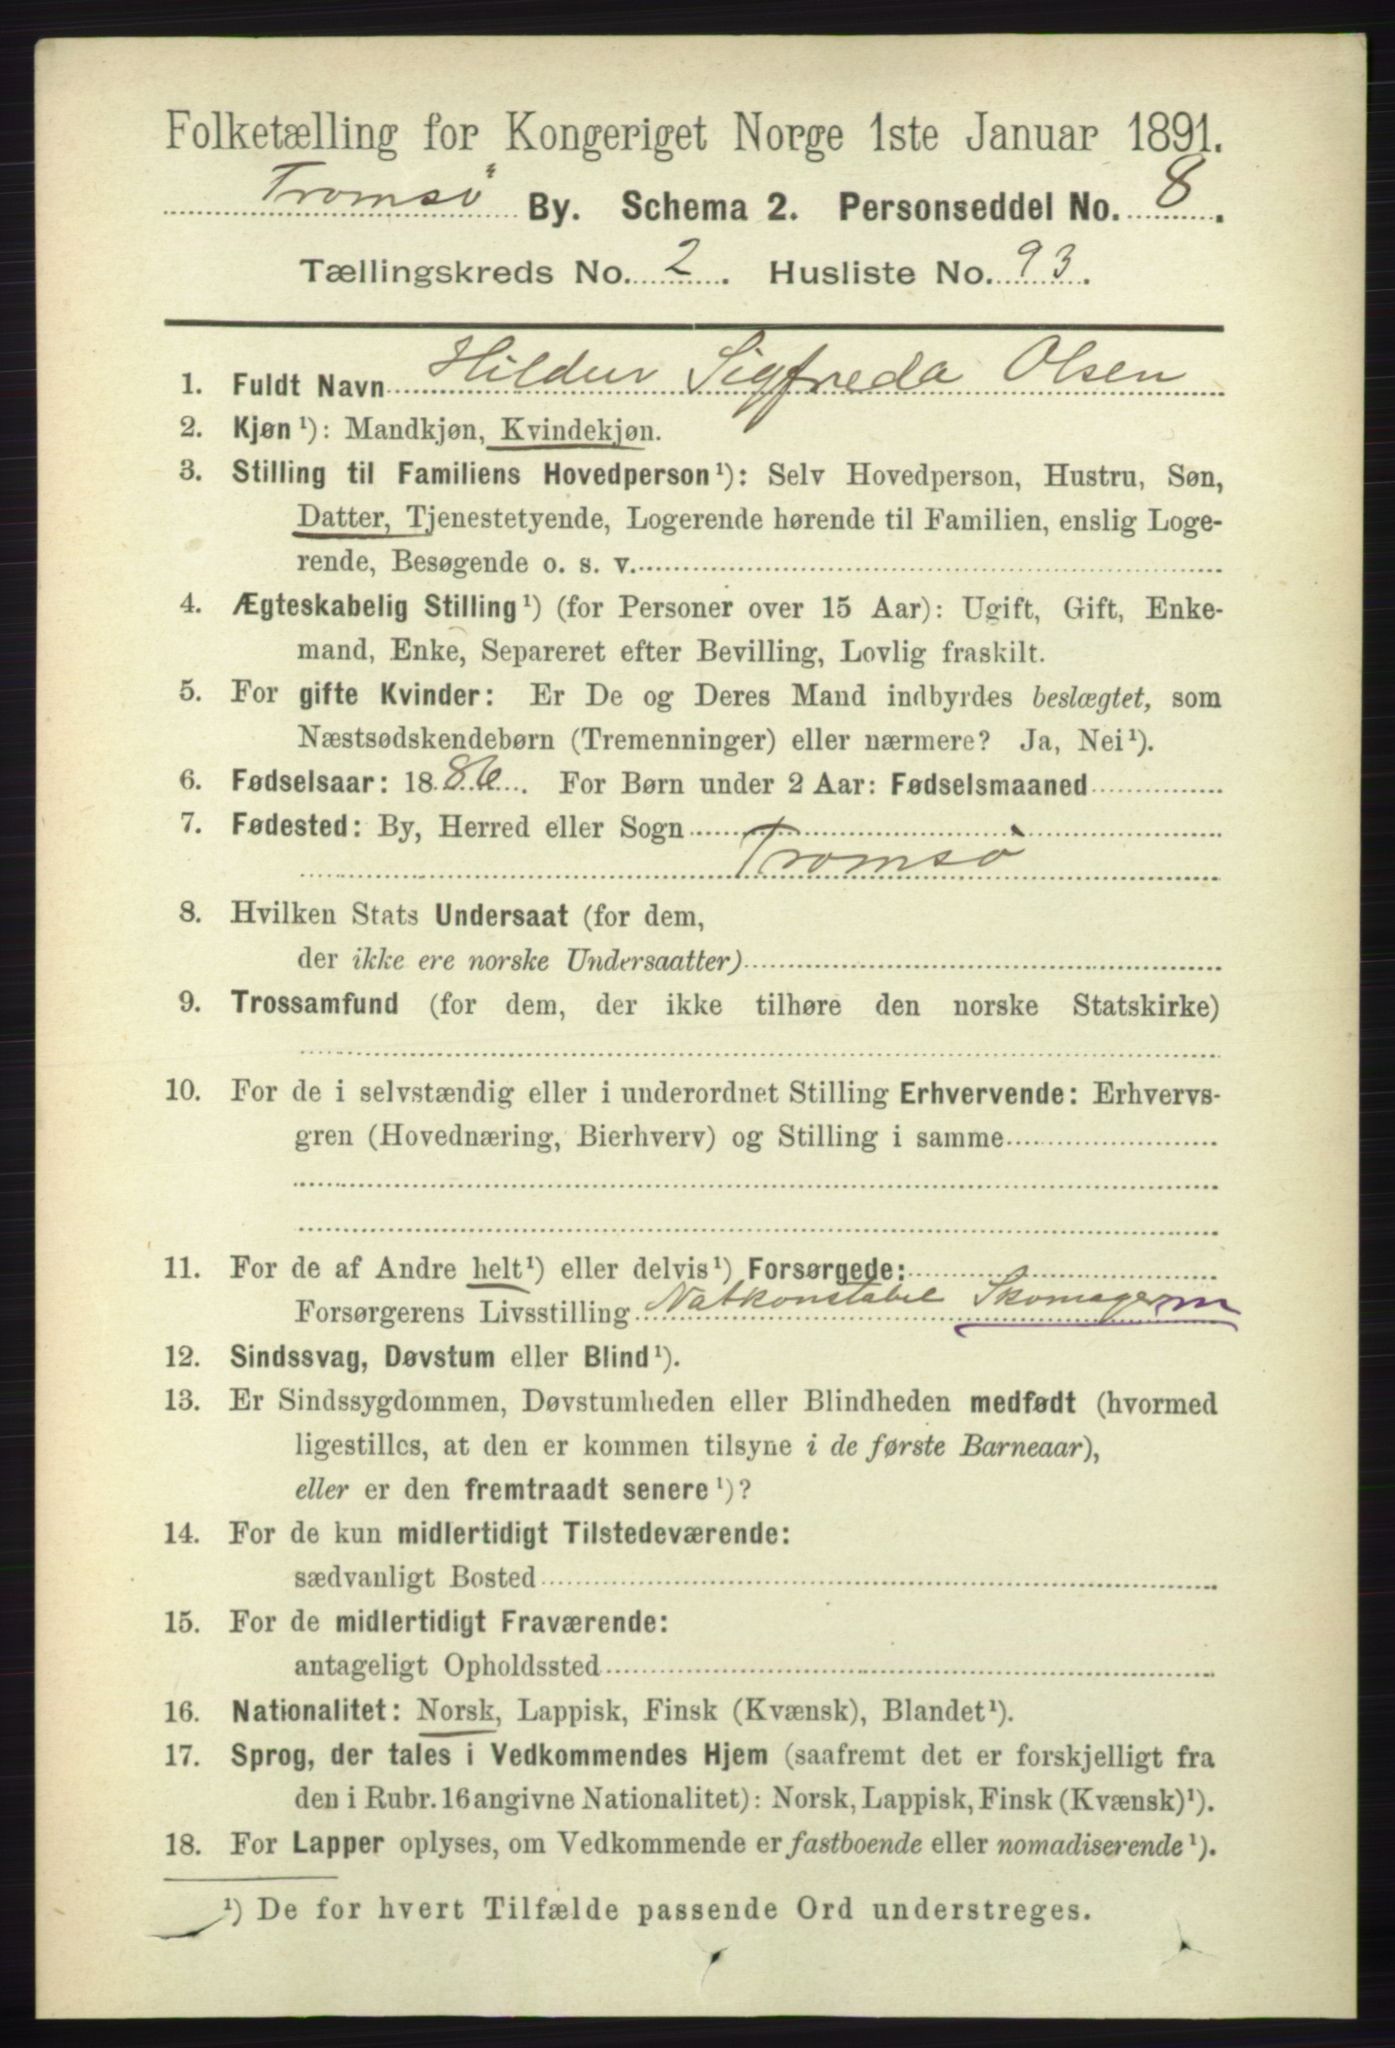 Folketælling for Kongeriget Norge 1ste Januar 1891.
Tromsø By. Schema 2. Personseddel No. 8.
Tællingskreds No. 2. Husliste No. 93.
1. Fuldt Navn Hildur Sigfreda Olsen
2. Kjøn ¹): Mandkjøn, Kvindekjøn.
3. Stilling til Familiens Hovedperson ¹): Selv Hovedperson, Hustru, Søn,
Datter, Tjenestetyende, Logerende hørende til Familien, enslig Loge-
rende, Besøgende o. s. v.
4. Ægteskabelig Stilling ¹) (for Personer over 15 Aar): Ugift, Gift, Enke-
mand, Enke, Separeret efter Bevilling, Lovlig fraskilt.
5. For gifte Kvinder: Er De og Deres Mand indbyrdes beslægtet, som
Næstsødskendebørn (Tremenninger) eller nærmere? Ja, Nei ¹).
6. Fødselsaar: 1886. For Børn under 2 Aar: Fødselsmaaned
7. Fødested: By, Herred eller Sogn
Tromsø
8. Hvilken Stats Undersaat (for dem,
der ikke ere norske Undersaatter)
9. Trossamfund (for dem, der ikke tilhøre den norske Statskirke)
10. For de i selvstændig eller i underordnet Stilling Erhvervende: Erhvervs-
gren (Hovednæring, Bierhverv) og Stilling i samme
11. For de af Andre helt ¹) eller delvis ¹) Forsørgede:
Forsørgerens Livsstilling Natkonstabel Skomager m
12. Sindssvag, Døvstum eller Blind ¹).
13. Er Sindssygdommen, Døvstumheden eller Blindheden medfødt (hvormed
ligestilles, at den er kommen tilsyne i de første Barneaar),
eller er den fremtraadt senere ¹)?
14. For de kun midlertidigt Tilstedeværende:
sædvanligt Bosted
15. For de midlertidigt Fraværende:
antageligt Opholdssted
16. Nationalitet: Norsk, Lappisk, Finsk (Kvænsk), Blandet ¹).
17. Sprog, der tales i Vedkommendes Hjem (saafremt det er forskjelligt fra
den i Rubr. 16 angivne Nationalitet): Norsk, Lappisk, Finsk (Kvænsk) ¹).
18. For Lapper oplyses, om Vedkommende er fastboende eller nomadiserende ¹).
¹) De for hvert Tilfælde passende Ord understreges.